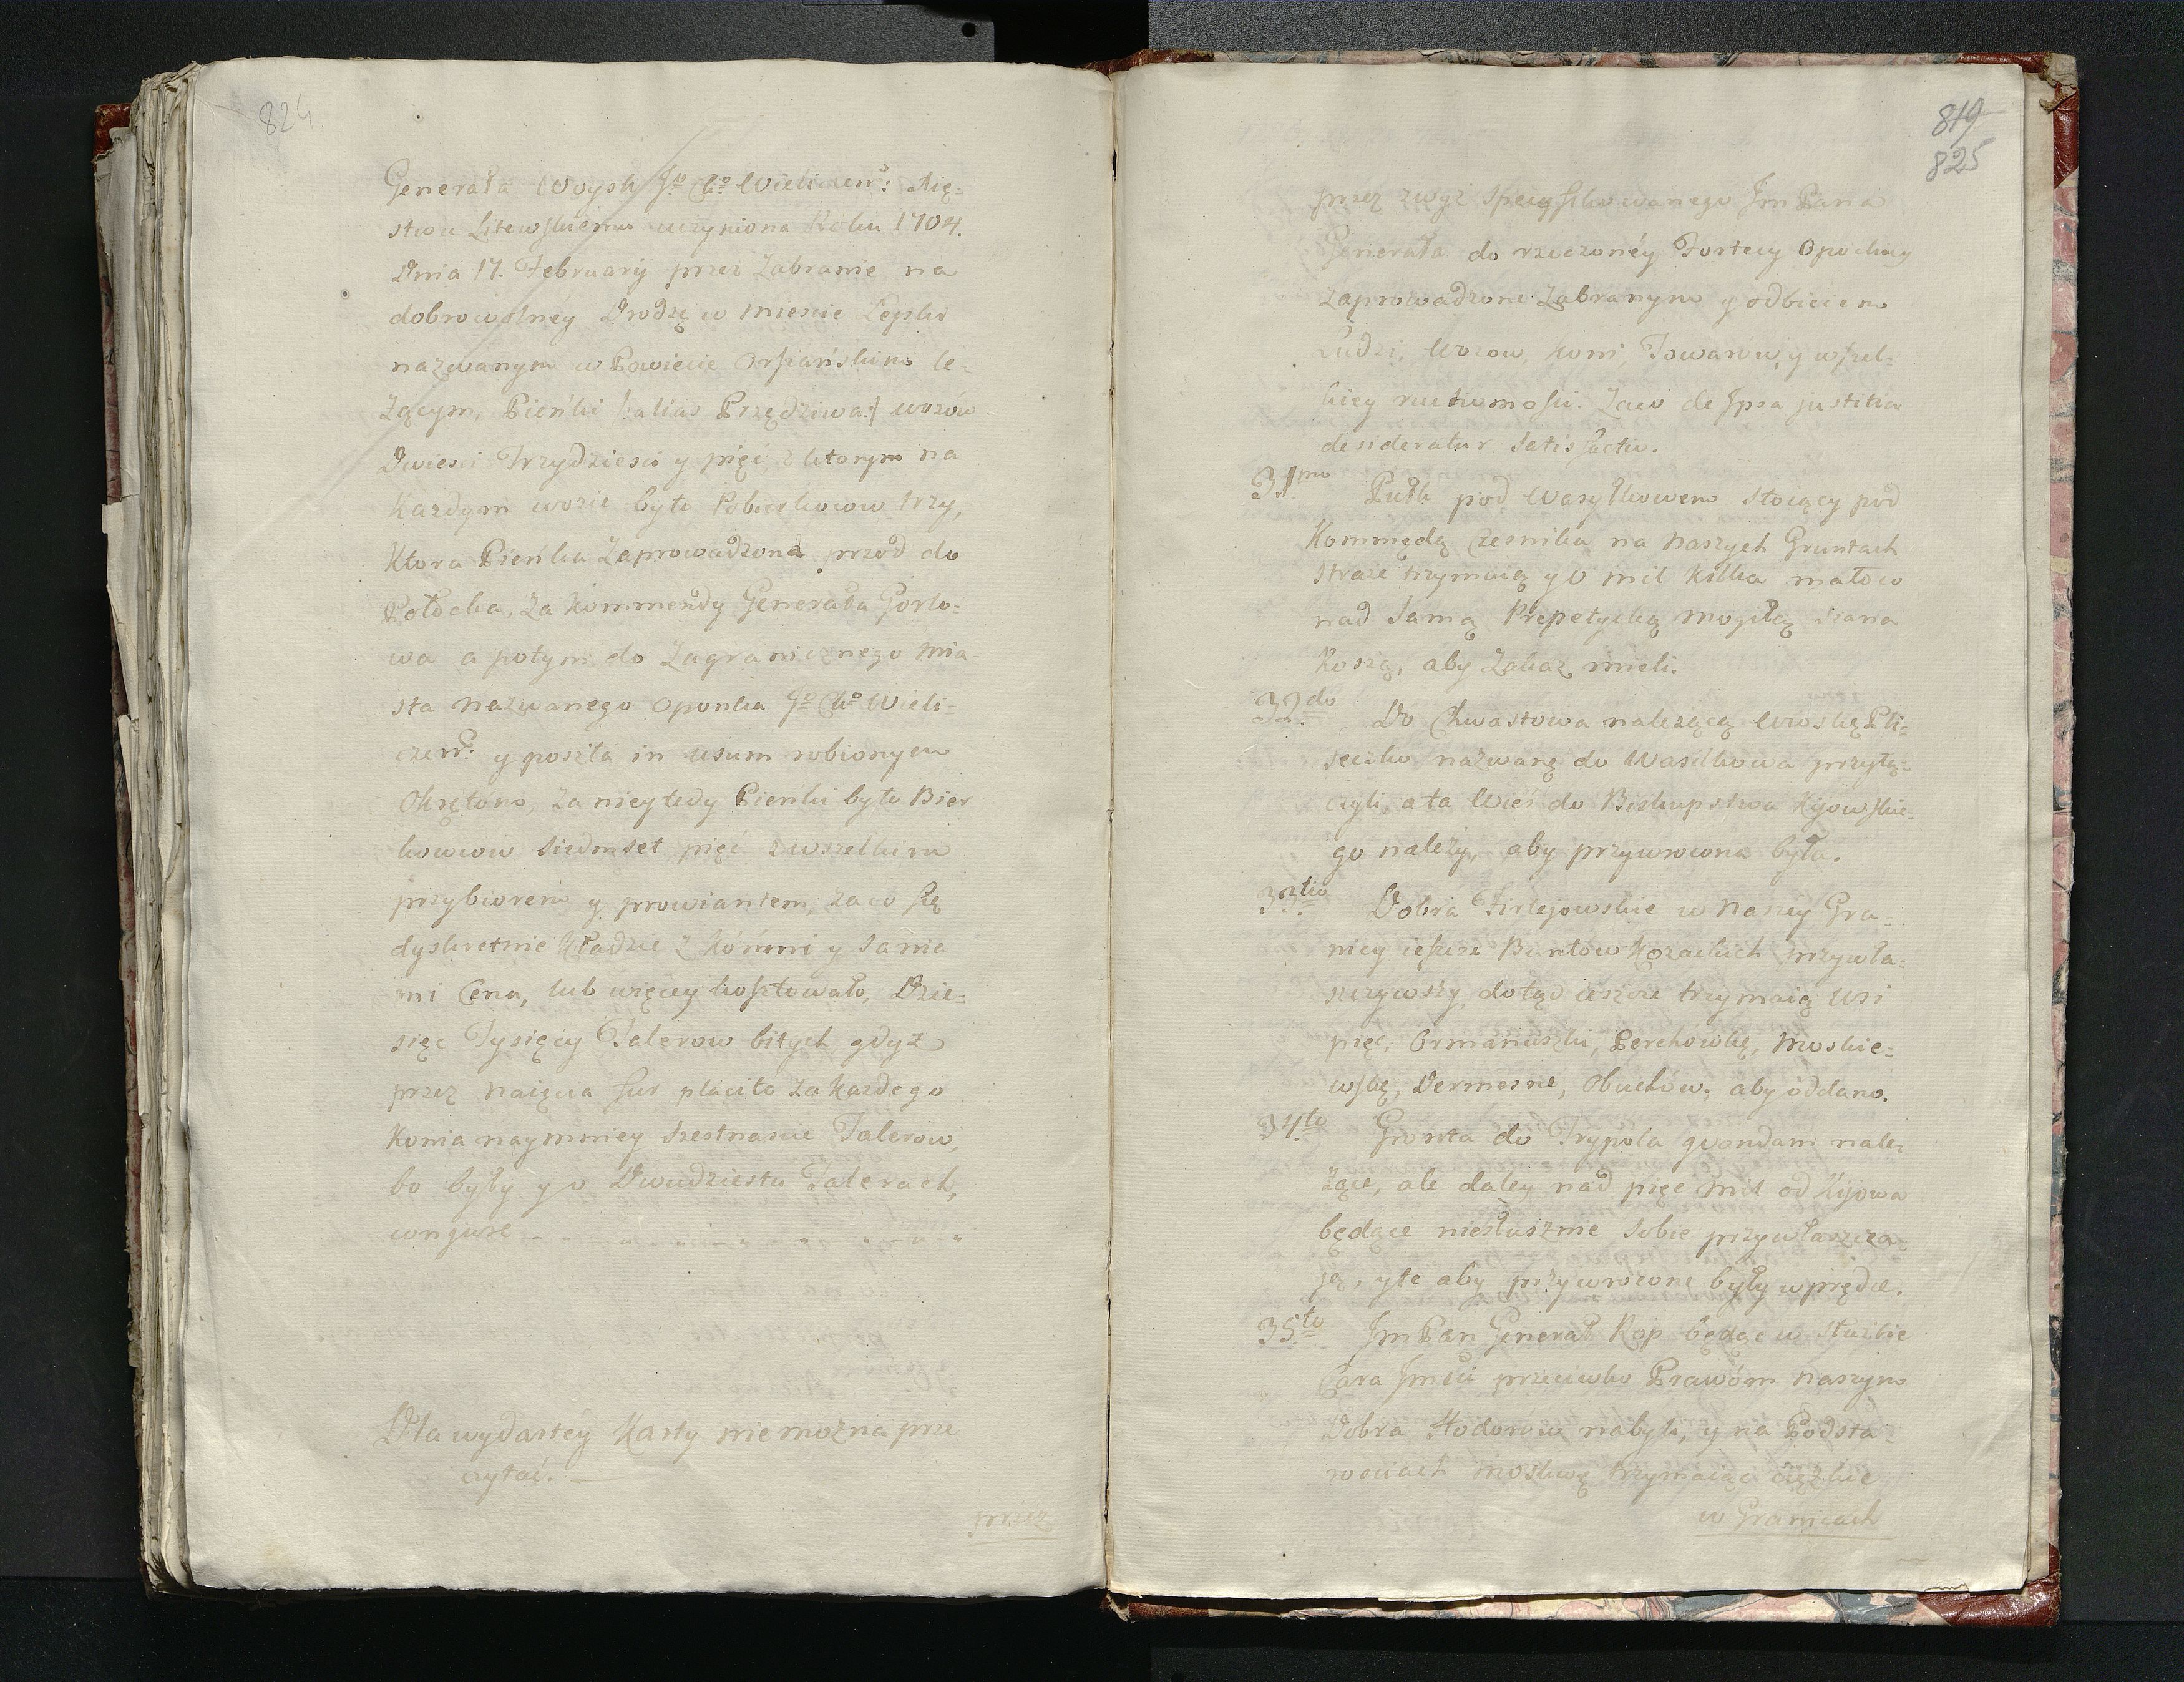 824
Generała Woysk Jº Cºº Wieliczenˢ: Xię-
stwu Litewskiemu uczyniona Roku 1704.
Dnia 17. February przez Zabranie na
dobrowolnéy Drodzę w miescie Czeplei
nazwanym w Powiecie Orszańskim le-
Żącym, Pieńki |:alias Przędziwa:| wozów
Dwiesci Trzydziesci y pięć, z ktorym na
Kazdym wozie było Pobierkowow trzy,
Ktora Pieńka Zaprowadzona przód do
Połocka, za Kommendy Generała Gorbo-
wa a potym do Zagranicznego mia-
sta nazwanego Oponka Jº Cºº Wieli-
czenˢ: y poszła in usum robionym
Okrętóm, za niey tedy Pieńki było Bier
kowcow siedmset pięć z wszelkim
przybiorem y prowiantem, za co się
dyskretnie Kładzie z Końmi y Sania
mi Cena, lub więcey kosztowało, Dzie-
sięc Tysięcy Talerow bitych gdyż
przez naięcia fur płaciło za Kazdego
Konia naymniey Szesnascie Talerow,
bo były y o Dwudziestu Talerach,
conjure
Dla wydartéy Karty nie mozna prze
czytać.
przez
819
825
przez zwyż specyfikowanego Jm Pana
Generała do rzeczonéy Fortecy Opoczny
zaprowadzone Zabranym y odbiciem
Ludzi, Wozow, Koni, Towarów, y wszel-
kiey ruchomości. Zaco de Ipsa justitia
desideratur Satisfactio.
31mo Pułk pod Wasylkowem stoiący pod
Kommędą Czesnika na Naszych Gruntach
straże trzymaią y o mil Kilka małow
nad Samą Prepetycką Mogiłą Siana
Koszą, aby Zakaz mieli.
32do Do Chwastowa nalezącą Wioskę Pli-
seczko nazwaną do Wasilkowa przyłą-
czyli, a ta Wieś do Biskupstwa Kijowskie-
go należy, aby przywrocona była.
33tio Dobra Firlejowskie w Naszéy Gra-
nicy ieszcze Buntow Kozackich przywła-
szczywszy dotąd ieszcze trzymaią Wsi
pięć, Ormaniuszki, Perehówkę, Moskie-
wską, Dermesne, Obuchów, aby oddano.
34to Grunta do Trypola quondam nale-
żące, ale daley nad pięc mil od Kijowa
będące niesłusznie Sobie przywłaszcza-
ją, y te aby przywrocone były wprędce.
35to Jm Pan Generał Rop będąc w służbie
Cara Jmści przeciwko Prawóm naszym
Dobra Hodorów nabyli, y na Podsta-
wociach Moskwę trzymaiąc ciężkie
w Granicach